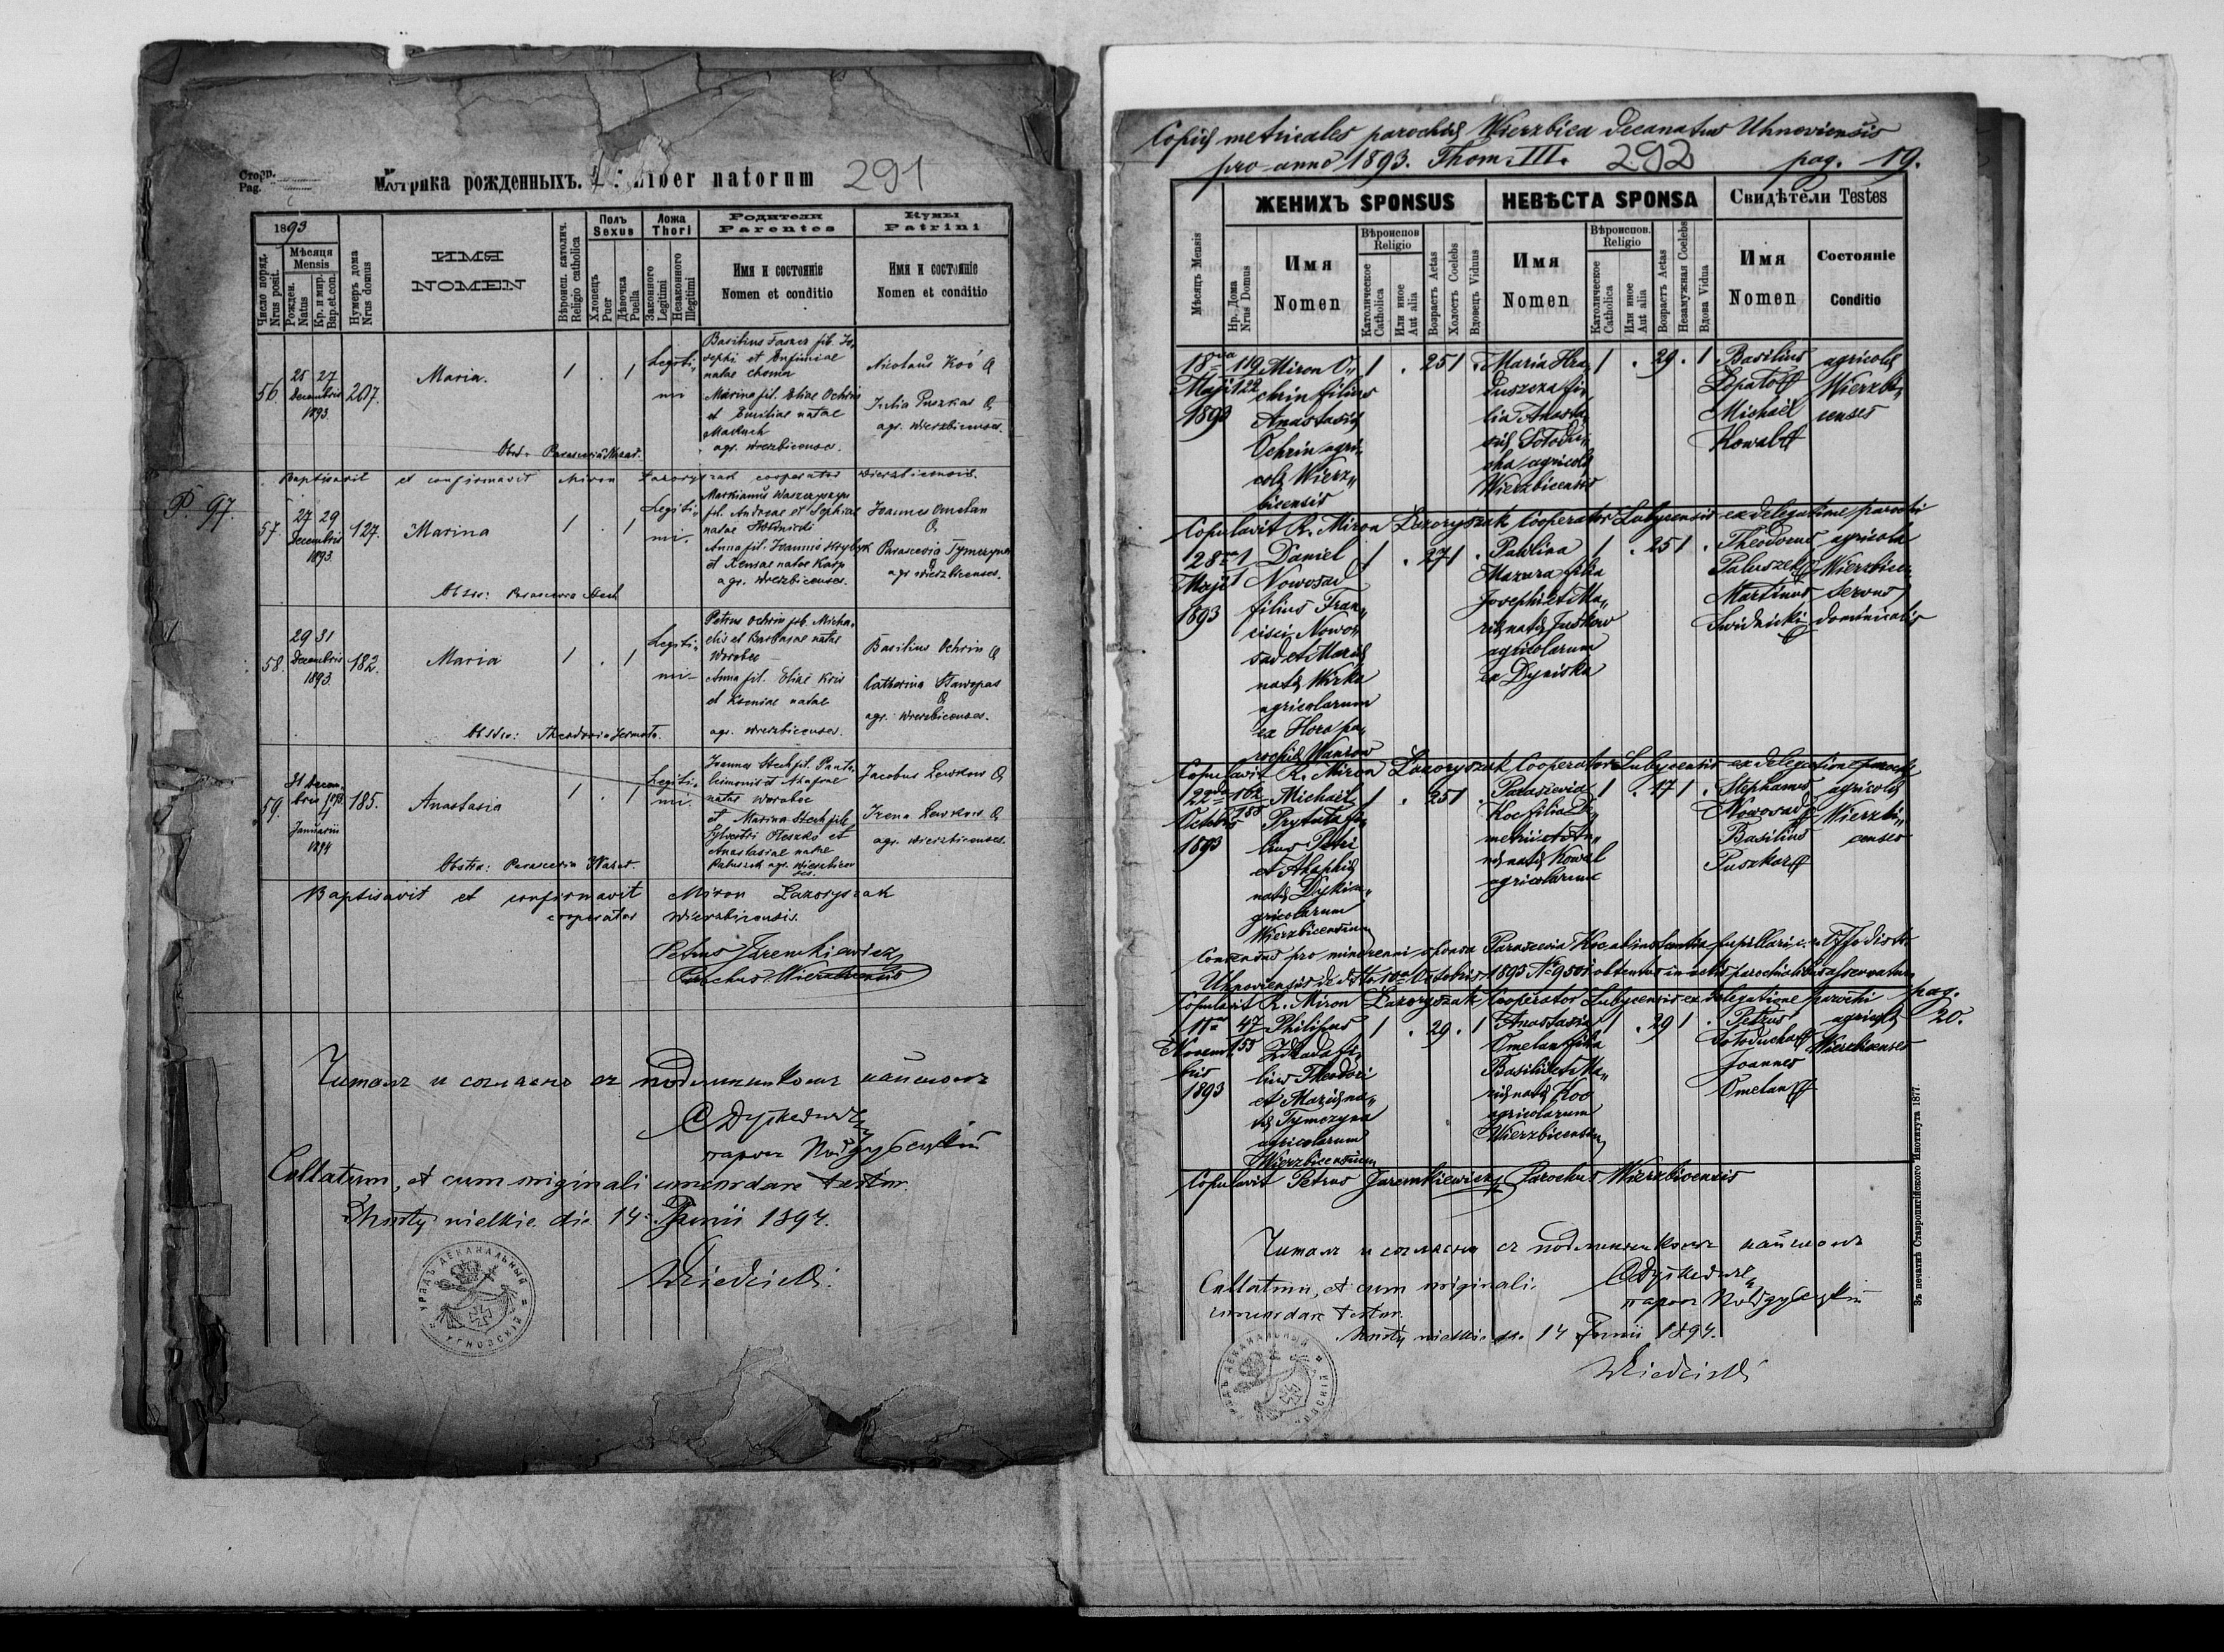 Сторр.
Pag.
Метрика рожденныхъ. Liber natorum 291
1893
Число поряд.
Nrus posit.
Мѣсяця
Mensis
Рожден.
Natus
Кр. и мир.
Bap. et con.
Нумеръ дома
Nrus domus
ИМЯ
NOMEN
Вѣроисп. католич.
Religio catholica
Полъ
Sexus
Хлопець
Puer
Дѣвочка
Puella
Ложа
Thori
Законного
Legitimi
Незаконного
Illegitimi
Родители
Parentes
Имя и состоянie
Nomen et conditio
Кумы
Patrini
Имя и состоянie
Nomen et conditio
56. 25 27 Decembris 1893. 207. Maria. 1 . 1 Legiti„
mi
Basilius Fasner fil. Jo„
sephi et Eufimiae
natae Choma
Marina fil. Eliae Ochrin
et Emiliae natae
agr. Wierzbicenses.
Nicolaus Koć
Julia Puszkar
agr. Wierzbicenses.
Obst.
Baptisavit et confirmavit Miron Lazoryszak cooperator Wierzbicensis.
P. 97.
57. 27 29 Decembris 1893. 127. Marina 1 . 1 Legiti„
mi.
fil. Andreae et Sophiae
natae
Anna fil. Joannis Hrybyk
et Xeniae natae Karp
agr. Wierzbicenses.
Joannes Omelan
Parascevia Tymczyna
agr. Wierzbicenses.
Obstr: Parascevia Stech
58. 29 31 Decembris 1893. 182. Maria 1 . 1 Legiti„
mi
Petrus Ochrin fil. Micha„
elis et Barbarae natae
Worobec
Anna fil. Eliae Kris
et Kseniae natae
agr. Wierzbicenses.
Basilius Ochrin
Catharina
agr. Wierzbicenses.
Obstr: Theodosia
59. 31 Decem„
bris 1893
Januarii
1894
185. Anastasia 1 . 1 Legiti„
mi.
Joannes Stech fil. Panta„
leimonis et Ahafiae
natae Worobec
et Marina Stech fil.
Sylvestri Oleszko et
Anastasiae natae
Paluszek agr. Wierzbicen
ses.
Jacobus Lewkow
Irena Lewkow
agr. Wierzbicenses.
Obstr: Parascevia
Baptisavit et confirmavit Miron Lazoryszak
cooperator Wierzbicensis.
Petrus Jaremkiewicz
Parochus Wierzbicensis
Читалъ и согласно съ подлинникомъ найшолъ
Collatum, et cum originali concordare testor.
Mosty wielkie die 14 Junii 1894.
УРЯДЪ ДЕКАНАЛЬНЫЙ
Copia metricales parochiae Wierzbica decanatus Uhnoviensis
pro anno 1893. Thom. III. 292 pag. 19.
Мѣсяцъ Mensis
ЖЕНИХЪ SPONSUS
НЕВѢСТА SPONSA
Свидѣтели Testes
Нр. Дома
Nrus Domus
Имя
Nomen
Вѣроиспов
Religio
Католическое
Catholica
Или иное
Aut alia
Возрастъ Aetas
Холостъ Coelebs
Вдовецъ Viduus
Имя
Nomen
Вѣроиспов.
Religio
Католическое
Catholica
Или иное
Aut alia
Возрастъ Aetas
Незамужная Coelebs
Вдова Vidua
Имя
Nomen
Состоянie
Conditio
18va
Maji
1893
119
122
Miron O„
chrin filius
Anastasiae
Ochrin agri„
colae Wierz„
bicensis
1 . 25 1 .
Maria Hra„
duszcza fi„
lia Anasta„
siae Sołodu„
cha agricolae
Wierzbicensis
1 . 29 . 1
Basilius
Lopato
Michaël
Kowal
agricolae
Wierzbi„
censes
Copulavit R. Miron Lazoryszak Cooperator Lubycensis ex delegatione parochi
28va
Maji
1893
1
1
Daniel
Nowosad
filius Fran„
cisci Nowo„
sad et Mariae
natae Wirka
agricolarum
ex Hora pa„
rochiae Wanow
1 . 27 1 .
Pawlina
Mazura filia
Josephi et Ma„
riae natae Juśkow
agricolarum
ex Dyniska
1 . 25 1 .
Theodorus
Paluszek
Martinus
Swidnicki
agricola
Wierzbicen„
servus
dominicalis
Copulavit R. Miron Lazoryszak Cooperator Lubycensis ex delegatione parochi
22da
Octobris
1893
162
155
Michaël
Prytuła fi„
lius Petri
et Ahaphiae
natae Dykia„
gricolarum
Wierzbicensium
1 . 25 1 .
Parascevia
Koc filia De„
metrii et An„
nae natae Kowal
agricolarum
1 . 17 1 .
Stephanus
Nowosad
Basilius
Puszkar
agricolae
Wierzbi„
censes
Consensus pro minorenni sponsa Parascevia Koc ab instantia pupillari
Uhnoviensis de dtto 10ma Octobris 1893 No 9501 obtentus in actis parochialibus asservatur
Copulavit R. Miron Lazoryszak Cooperator Lubycensis ex delegatione parochi
pag. 20.
11ma
Novem„
bris
1893
47
153
Philipus
fi„
lius Theodori
et Mariae na„
tae Tymczyna
agricolarum
Wierzbicensium
1 . 29 . 1
Anastasia
Omelan filia
Basilii et Ma„
riae natae Koc
agricolarum
Wierzbicensium
1 . 29 1 .
Petrus
Sołoducha
Joannes
Omelan
agricolae
Wierzbicenses
Copulavit Petrus Jaremkiewicz Parochus Wierzbicensis
Читалъ и согласно съ подлинникомъ найшолъ
Collatum, et cum originali
concordare testor.
Mosty wielkie die 14 Junii 1894.
Зъ печатнѣ Ставропигiйского Института 1877.